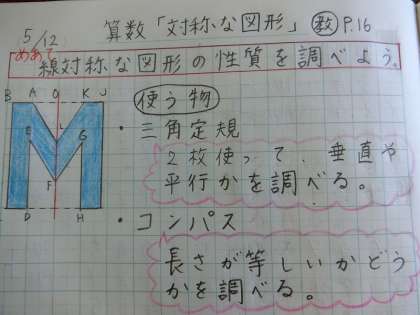 5/12 算数「対称な図形」 教 P.16
めあて
線対称な図形の性質を調べよう。
B A O K J
使う物
・三角定規
E L G
2枚使って、垂直や
平行かを調べる。
F
D H
・コンパス
長さが等しいかどう
かを調べる。